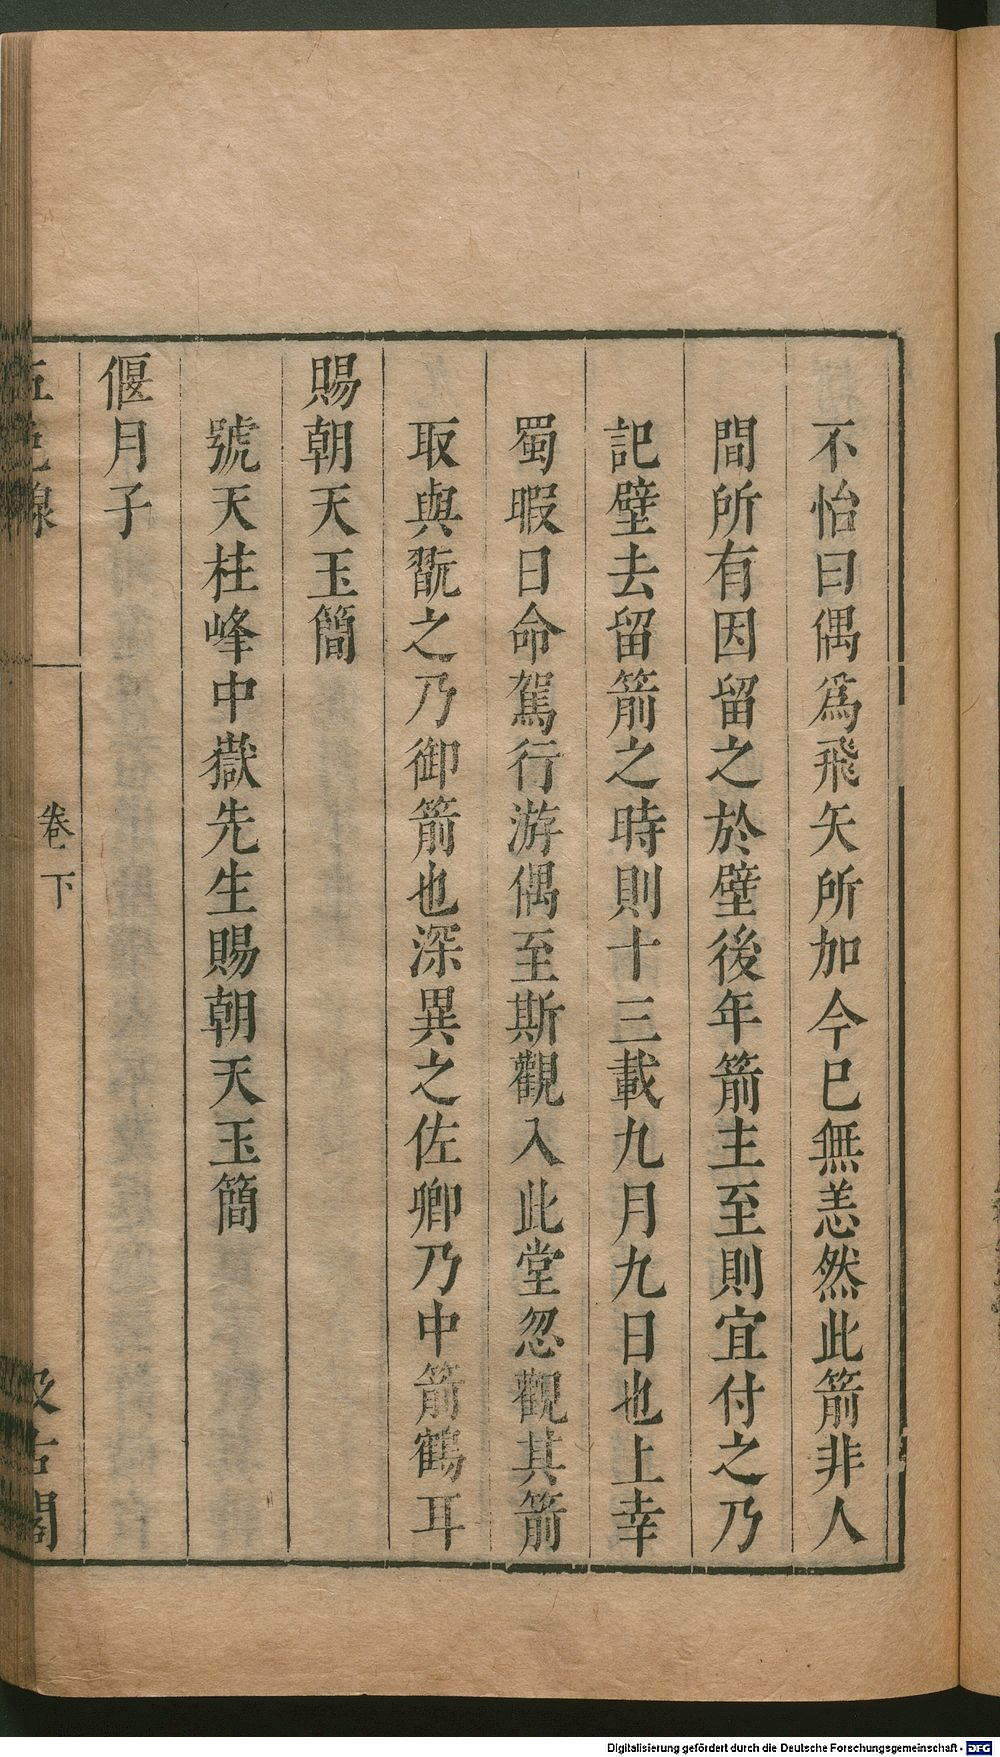 不怡曰偶爲飛矢所加今巳無恙然此箭非人
間所有因留之於壁後年箭主至則宜付之乃
記壁去留箭之時則十三載九月九日也上幸
蜀暇日命駕行游偶至斯觀入此堂忽觀其箭
取與翫之乃御箭也深異之佐卿乃中箭鶴耳
賜朝天玉簡
號天柱峰中嶽先生賜朝天玉簡
偃月子
五色線
卷下
汲古閣
Digitalisierung gefördert durch die Deutsche Forschungsgemeinschaft - DFG